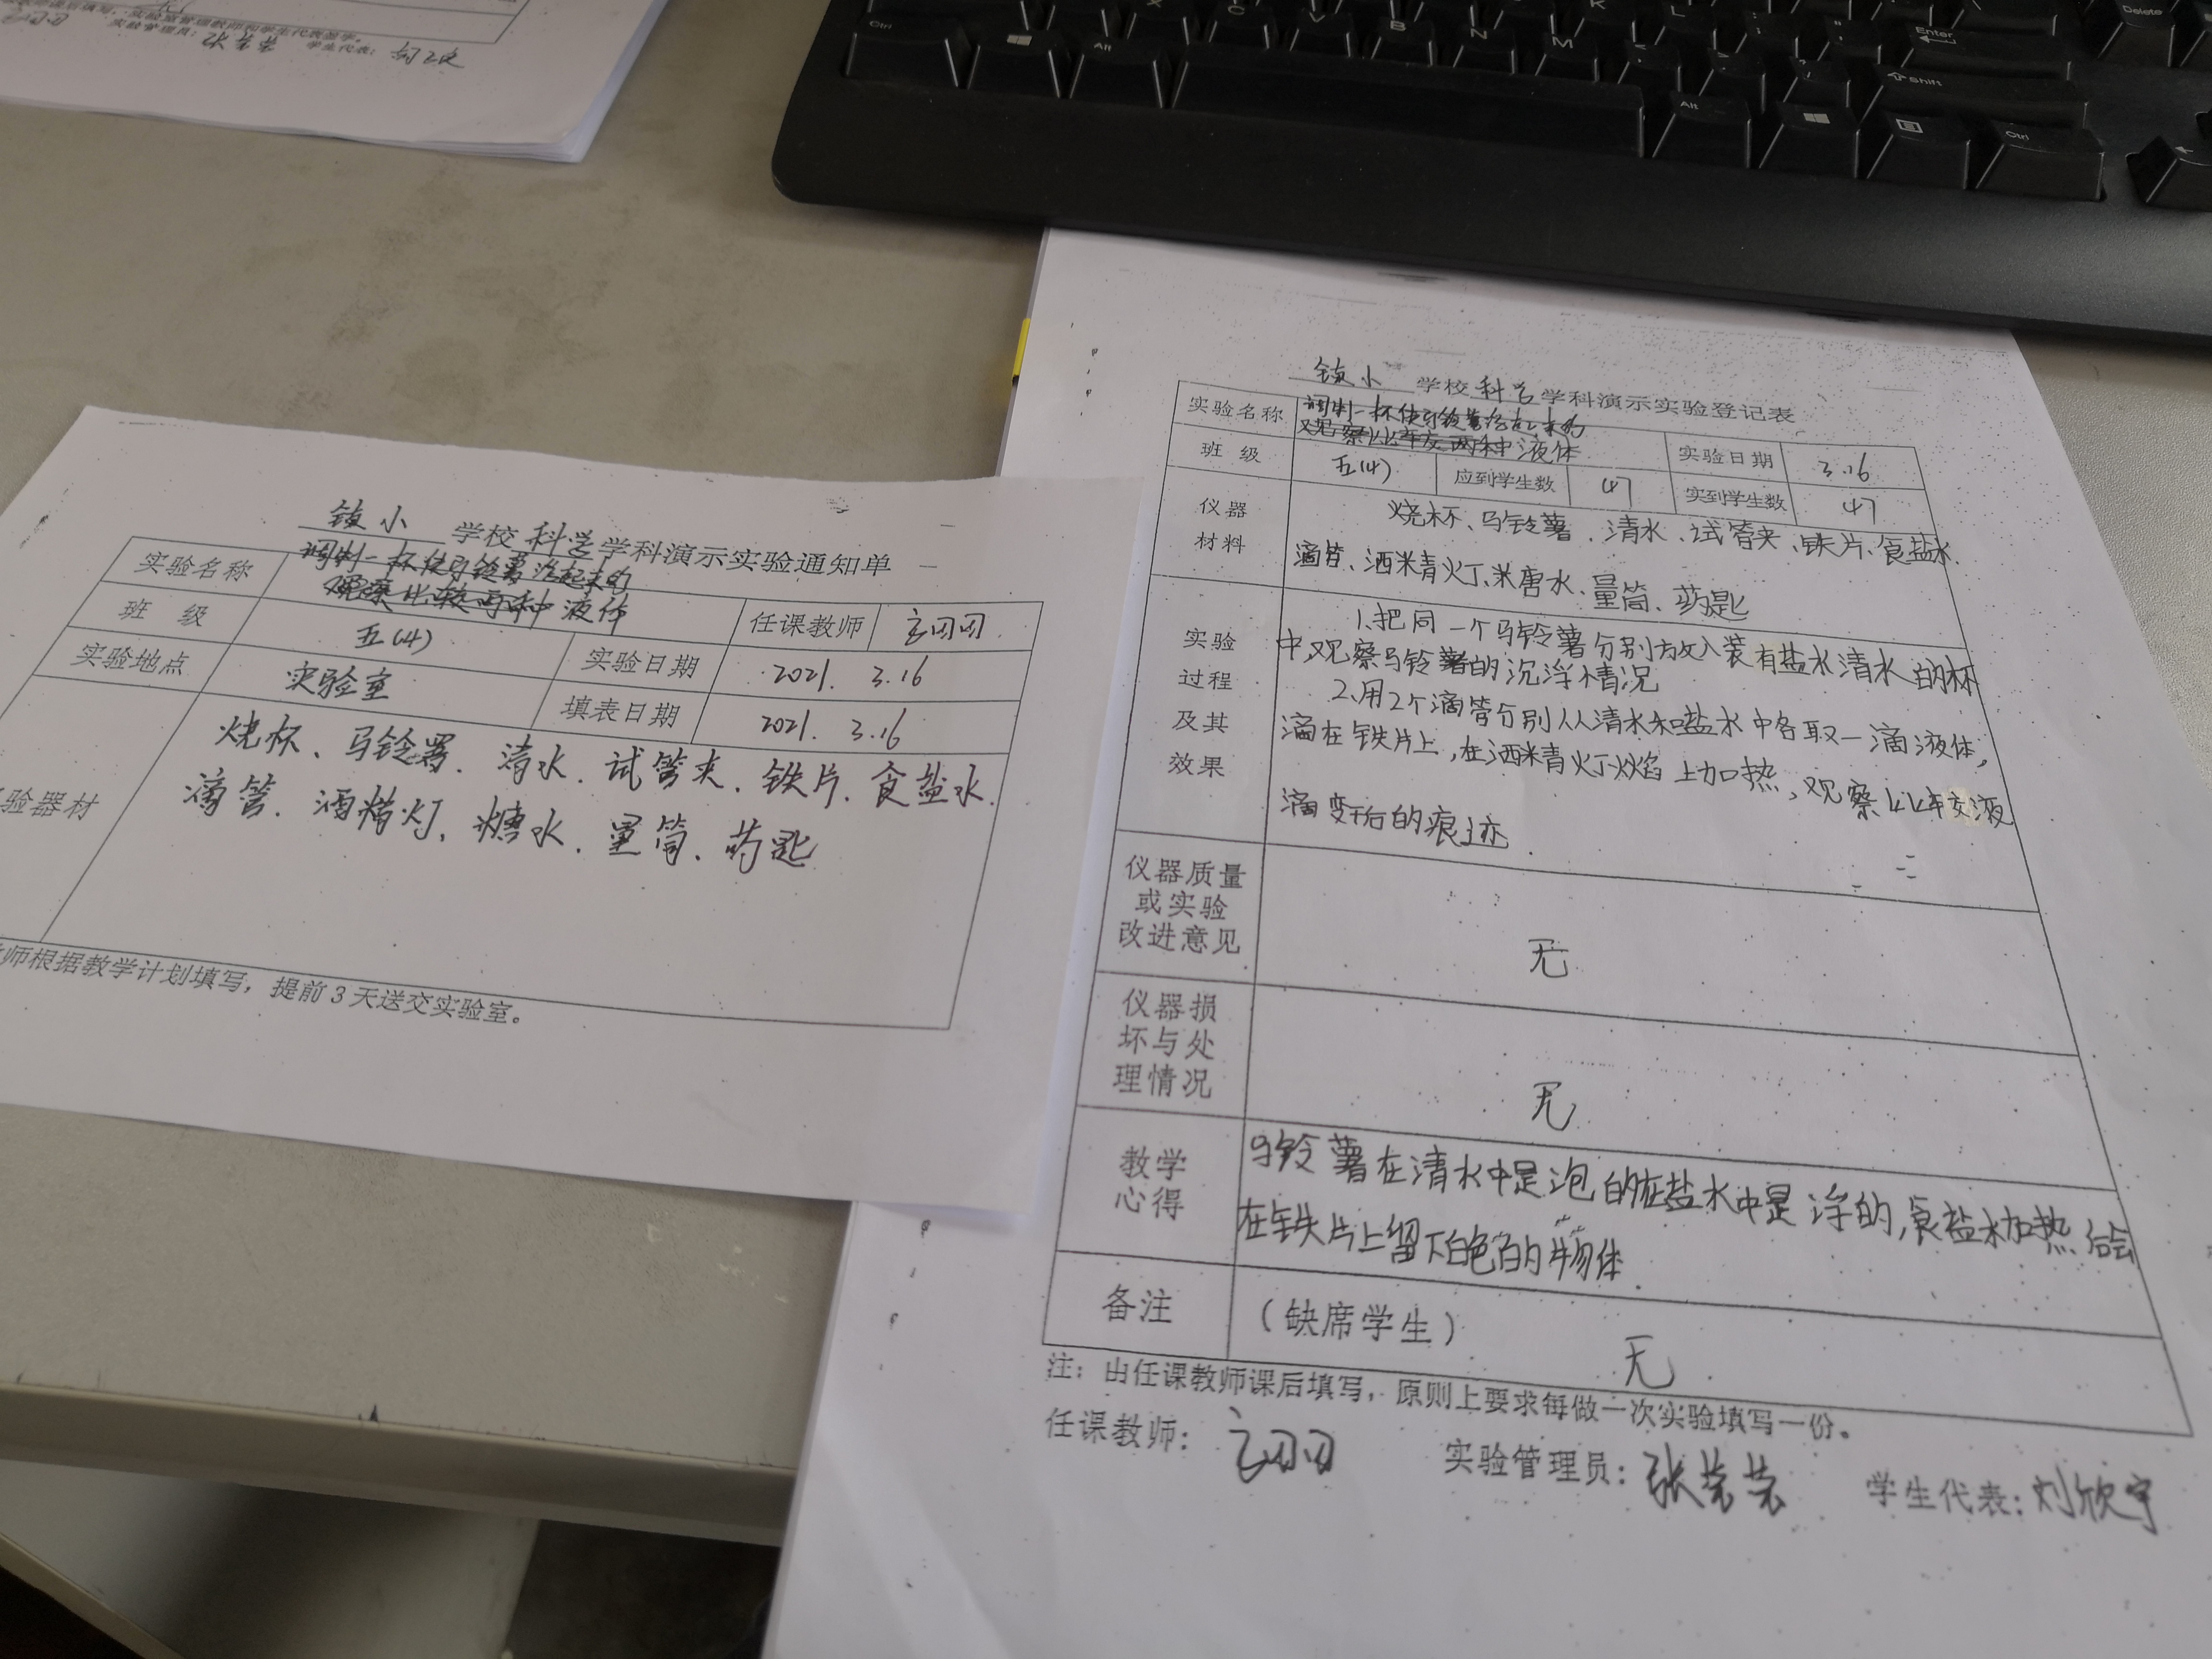 实验管理员:
学生代表:
Ctrl
Alt
X
C
V
B
N
M
K
L
Alt
Ctrl
Shift
Enter
Delete
镇小 学校 科学 学科演示实验通知单
实验名称 调制一杯使马铃薯浮起来的
观察比较两种液体
班 级 五(4) 任课教师
实验地点 实验室 实验日期 2021. 3.16
填表日期 2021. 3.16
验器材 烧杯、马铃薯、清水、试管夹、铁片、食盐水、
滴管、酒精灯、糖水、量筒、药匙
师根据教学计划填写，提前3天送交实验室。
镇小 学校 科学 学科演示实验登记表
实验名称 调制一杯使马铃薯浮起来的
观察比较两种液体 实验日期 3.16
班 级 五(4) 应到学生数 47 实到学生数 47
仪器材料 烧杯、马铃薯、清水、试管夹、铁片、食盐水、
滴管、酒精灯、糖水、量筒、药匙
实验过程及其效果 1.把同一个马铃薯分别放入装有盐水清水的杯
中,观察马铃薯的沉浮情况
2.用2个滴管分别从清水和盐水中各取一滴液体,
滴在铁片上,在酒精灯火焰上加热,观察比较液
滴变干后的痕迹.
仪器质量或实验改进意见 无
仪器损坏与处理情况 无
教学心得 马铃薯在清水中是沉的在盐水中是浮的,食盐水加热后会
在铁片上留下白色的物体.
备注 (缺席学生) 无
注：由任课教师课后填写，原则上要求每做一次实验填写一份。
任课教师: 实验管理员: 张芸芸 学生代表: 刘欣宇